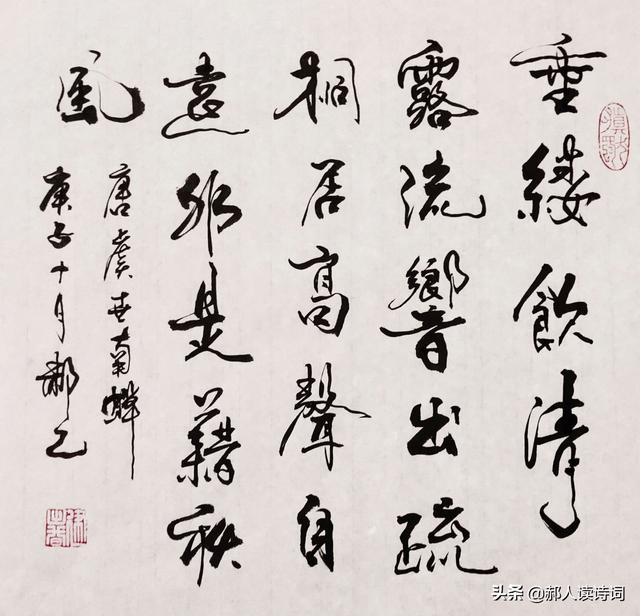 垂緌飲清
露流響出疏
桐居高聲自
遠非是藉秋
風
唐虞世南蟬
庚子十月郝
头条 @郝人读诗词